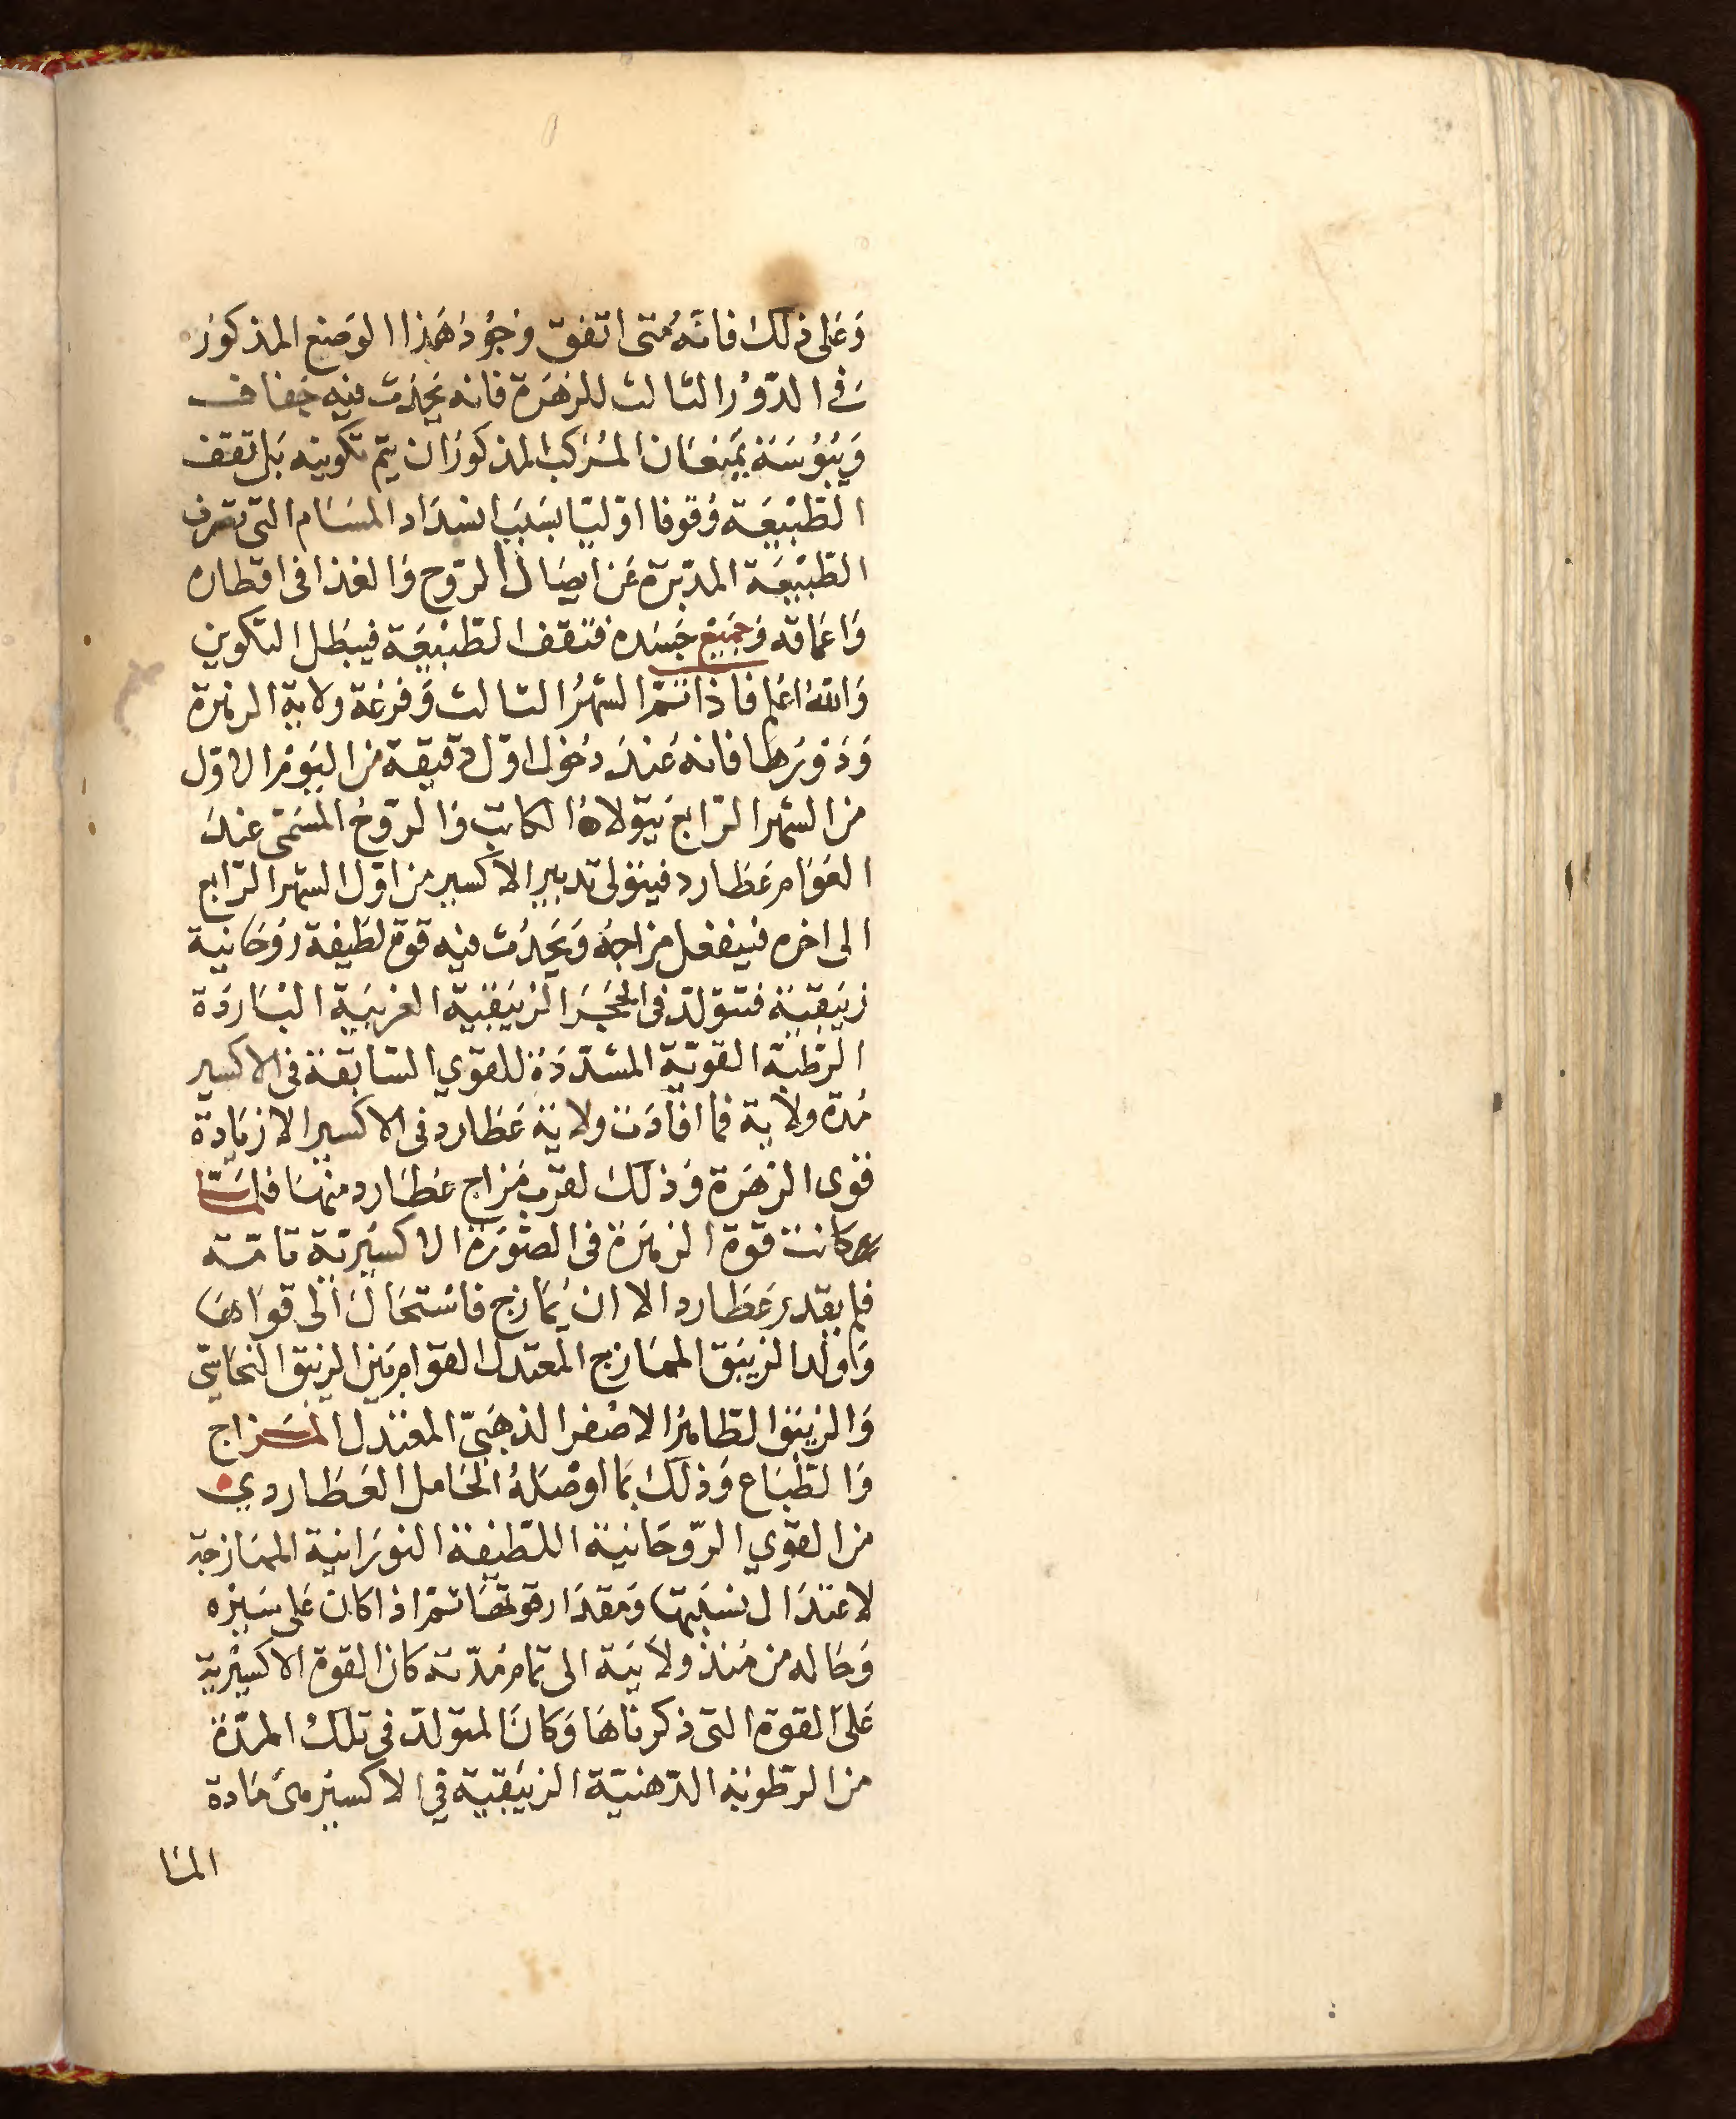 وَعَلى ذلكَ فانَّهُ متى اتفق وُجُودُ هَذا الوَضع المذكورُ
في الدّوْر الثالث للزهَرة فانه يَحدُث فيه جفاف
وَيُبُوُسَة يمنعَان المُركب المذكورُ ان يتم تكوينه بَل تقف
الطّبْيعَة وُقوفا اوّليّا بسَبَب انسدَاد المسَام التى تصرف
الطّبْيعَة المدَبّرة عَن ايصَال الرّوح وَالغذا فى اقطاره
وَاعماقه وَجميعْ جَسَده فتَقف الطّبْيعَة فيبطل التكوين
وَاللهُ اعلم فاذا تَمّ الشهْرُ الثالث وَفرغة ولاية الزهرة
وَدَوْرَها فانه عَندَ دُخول اوّل دقيقة من اليَوْم الاوّل
من الشهر الرّابع يتولاهُ الكاتب وَالرّوحُ المسَمّى عندَ
العَوَام عَطارد فيتولى تدبير الاكسير من اوّل الشهر الرّابع
الى اخره فينفعل مزاجهُ وَيحدُث فيه قوة لطيفة رُوحَانية
زيبَقيّة فتتولد فى الحجَر الزيَبقيّة الغريبَة البَاردَة
الرّطبَة القويّة المشدّدَة للقوي السّابقة فى الاكسير
مُدة ولاية فما افادَت ولاية عَطارد فى الاكسير الا زيَادة
قوى الزهَرة وَذلكَ لقرب مَزاج عطارد منهَا فلمّا
كانت قوة الزهَرة فى الصّورَة الاكسيريّة تامّة
فلم يقدر عَطارد الا ان يُمَازج فاسْتحَال الى قوَاهَا
وَاولد الزيبَق الممَازج المعتدل القوام بَين الزيبق النحَاسى
وَالزيبَق الطّاهرُ الاصْفر الذهَبىّ المعتدل المَزاج
وَالطّبَاع وَذلكَ بما اوصْلهُ الحَامل العَطاردي
من القوي الرّوحَانية اللطيفة النورَانية الممَازجة
لاعتدَال نسبَتهَا وَمقدَار قوتهَا ثمّ اذا كان عَلى سَيْره
وَحَاله من مُنذ ولايَته الى تمام مُدّته كان القوة الاكسيْريّة
عَلىَ القوة التى ذكرنَاهَا وَكانَ المتولد فى تلكَ المدّة
من الرّطوبَة الدّهنيّة الزيبَقيّة في الاكسير هىَ مَادة
المَا